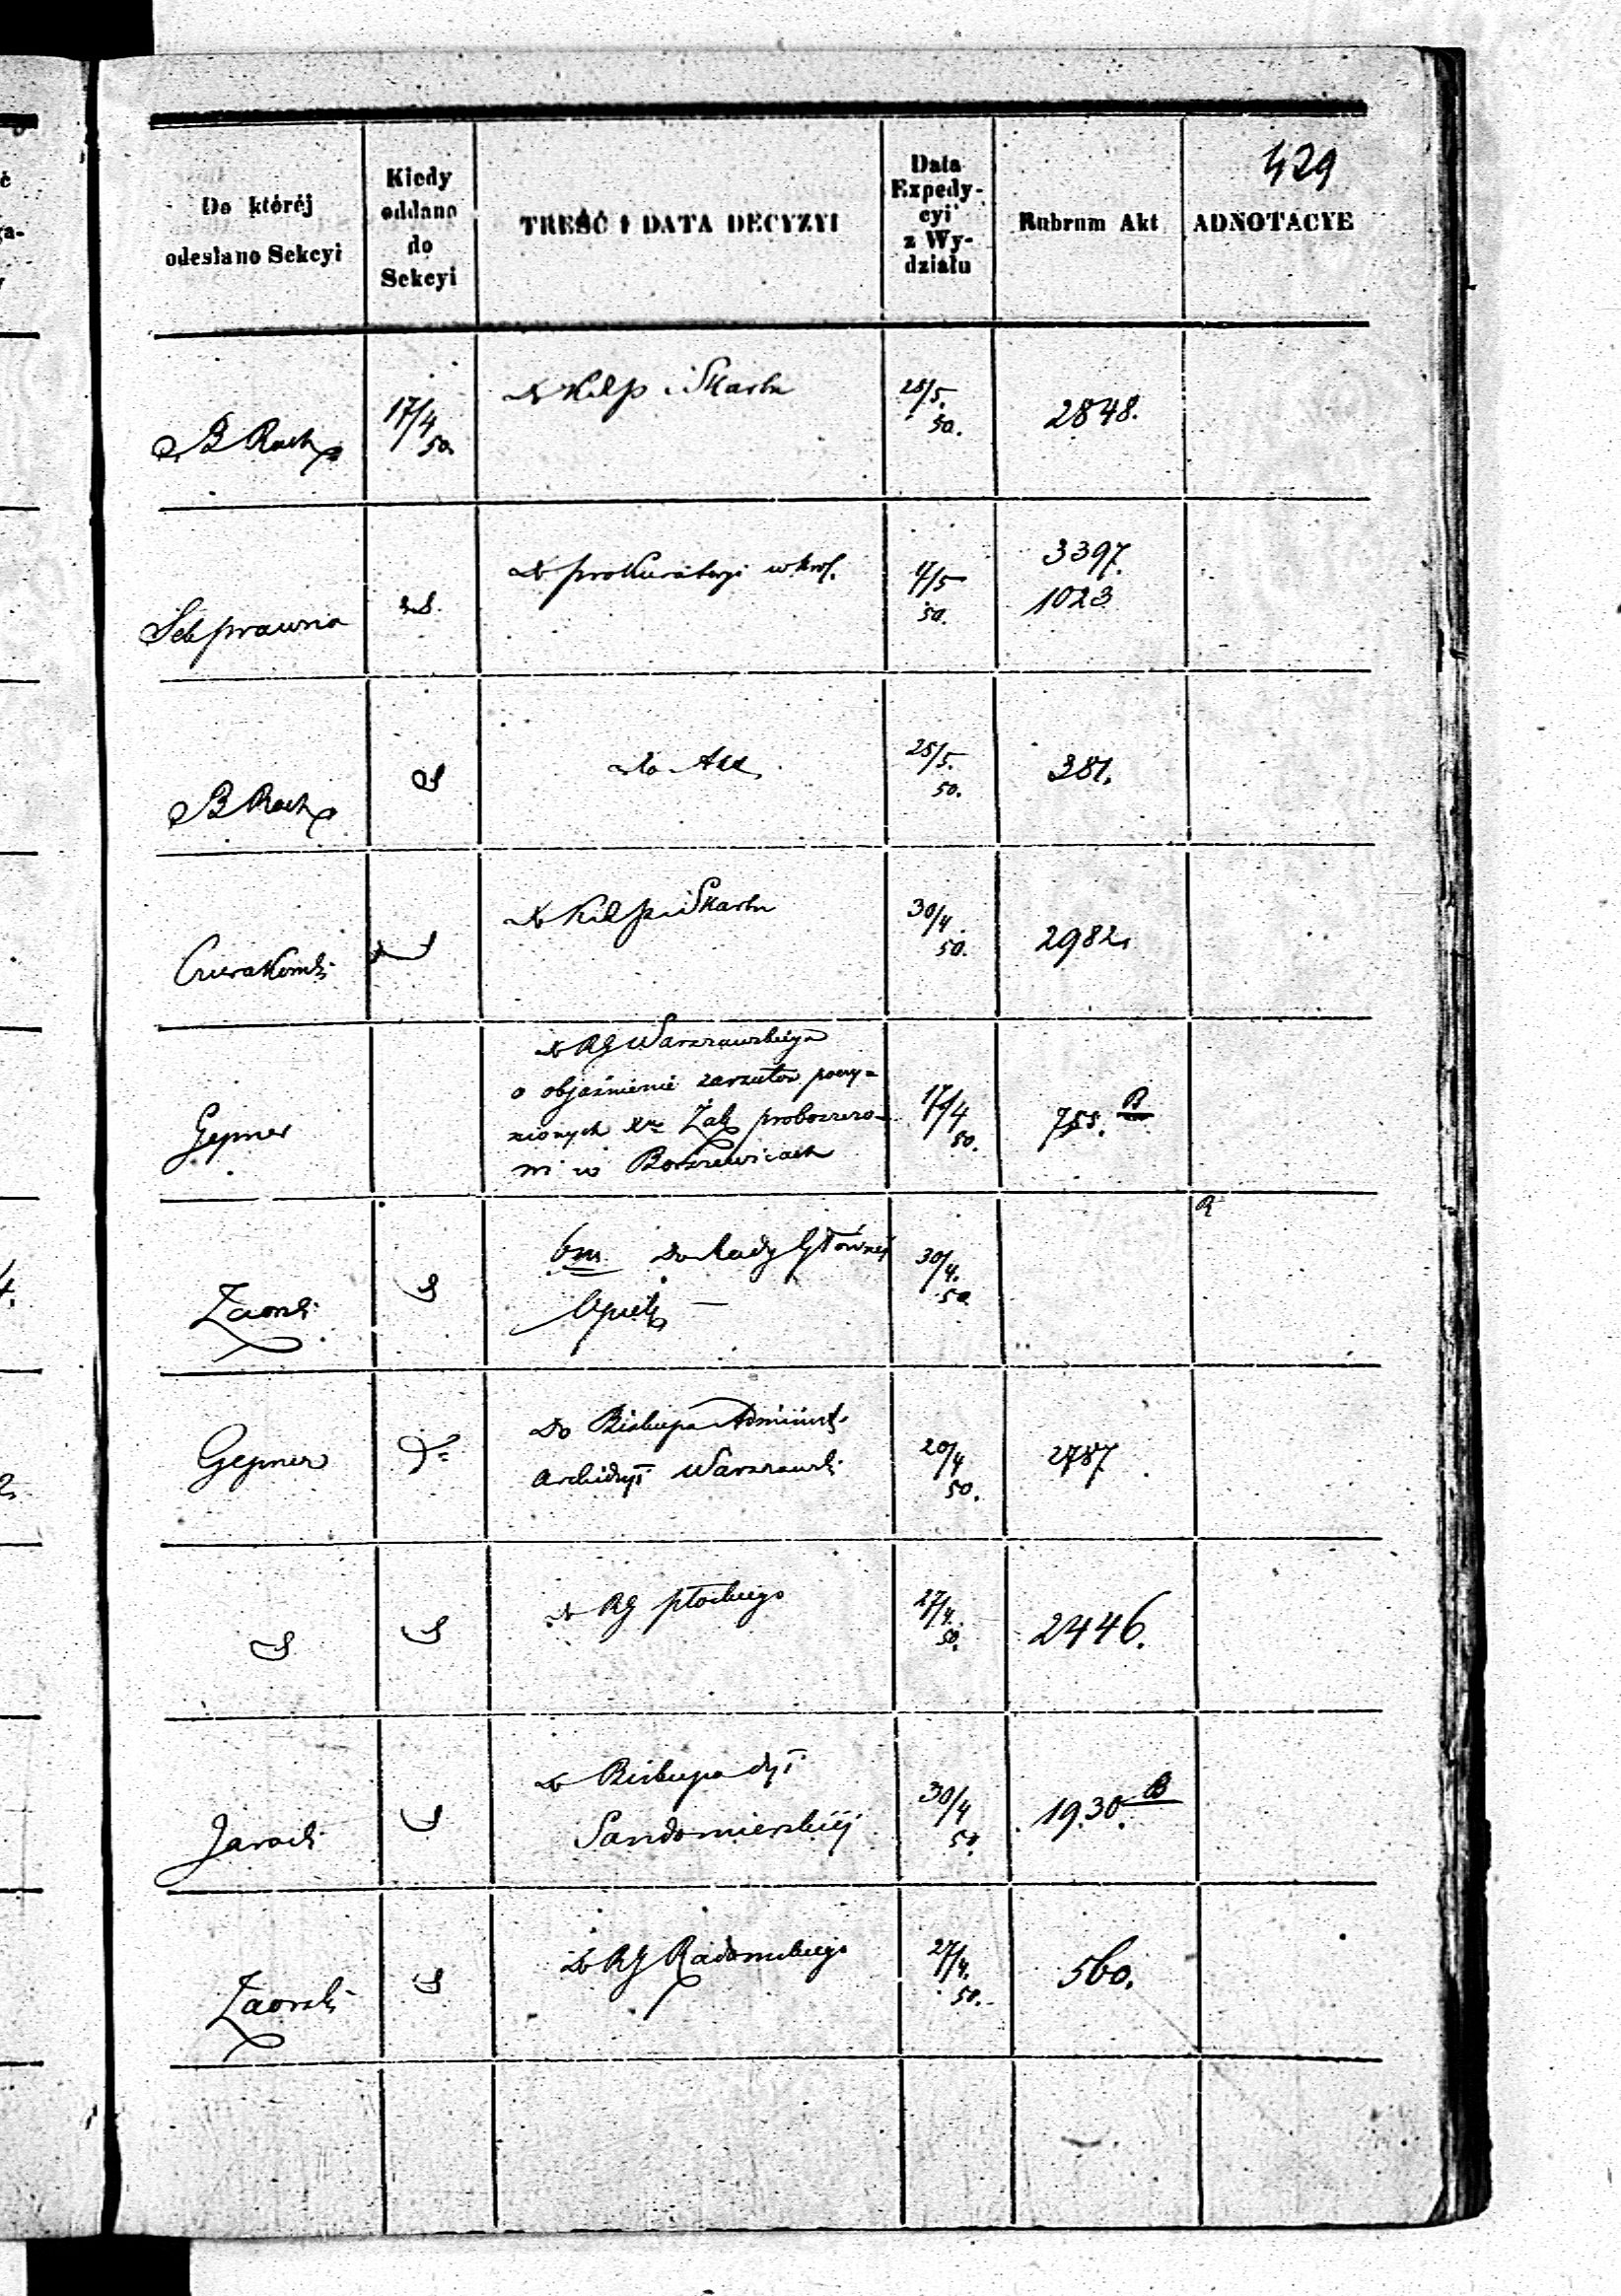 429
Do któréj
odesłano Sekcyi
Kiedy
oddano
do
Sekcyi
TREŚĆ I DATA DECYZYI
Data
Expedy-
cyi
z Wy-
działu
Rubrum Akt
ADNOTACYE
B Rach
17/4
50
Skarbu
28/5.
50.
2848.
Sek prawna
do prokuratoryi w król.
17/5
50.
3397.
1023
B Rach
do Akt
25/5.
50.
381.
Skarbu
30/4.
50.
2982.
Gepner
do RG Warszawskiego
o objaśnienie zarzutów poczy-
nionych Xdz Żak proboszczo-
wi w Borszewicach
17/4
50.
755. B
R
Zaorski
do Rady Głównéj
Opiek
30/4.
50
Gepner
Do Biskupa Administ.
Archidyi Warszawski
20/4
50.
2787
do RG płockiego
27/4.
50.
2446.
Jarocki
do Biskupa dyi
Sandomierskiéj
30/4
50.
1930. B
Zaorski
do RG Radomskiego
27/4.
50.
560.